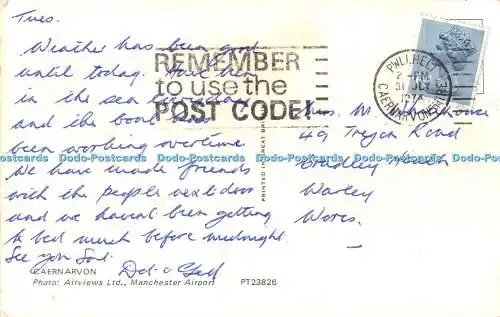 Tues.
Weather has been good
until today. Have been
in the sea
and the boat has
been working overtime.
We have made friends
with the people next door
and we havent been getting
to bed much before midnight.
See you Sat.
CAERNARVON
Photo: Airviews Ltd., Manchester Airport PT23826
REMEMBER
to use the
POST CODE!
PWLLHELI
2 - PM
CAERNARVONSHIRE
PRINTED IN GREAT
Mrs. M.
49 Tryon Road
Bradley
Warley
Worcs.
Dodo-Postcards Dodo-Postcards Dodo-Postcards Dodo-Postcards Dodo-Postcards Dodo-Postcards